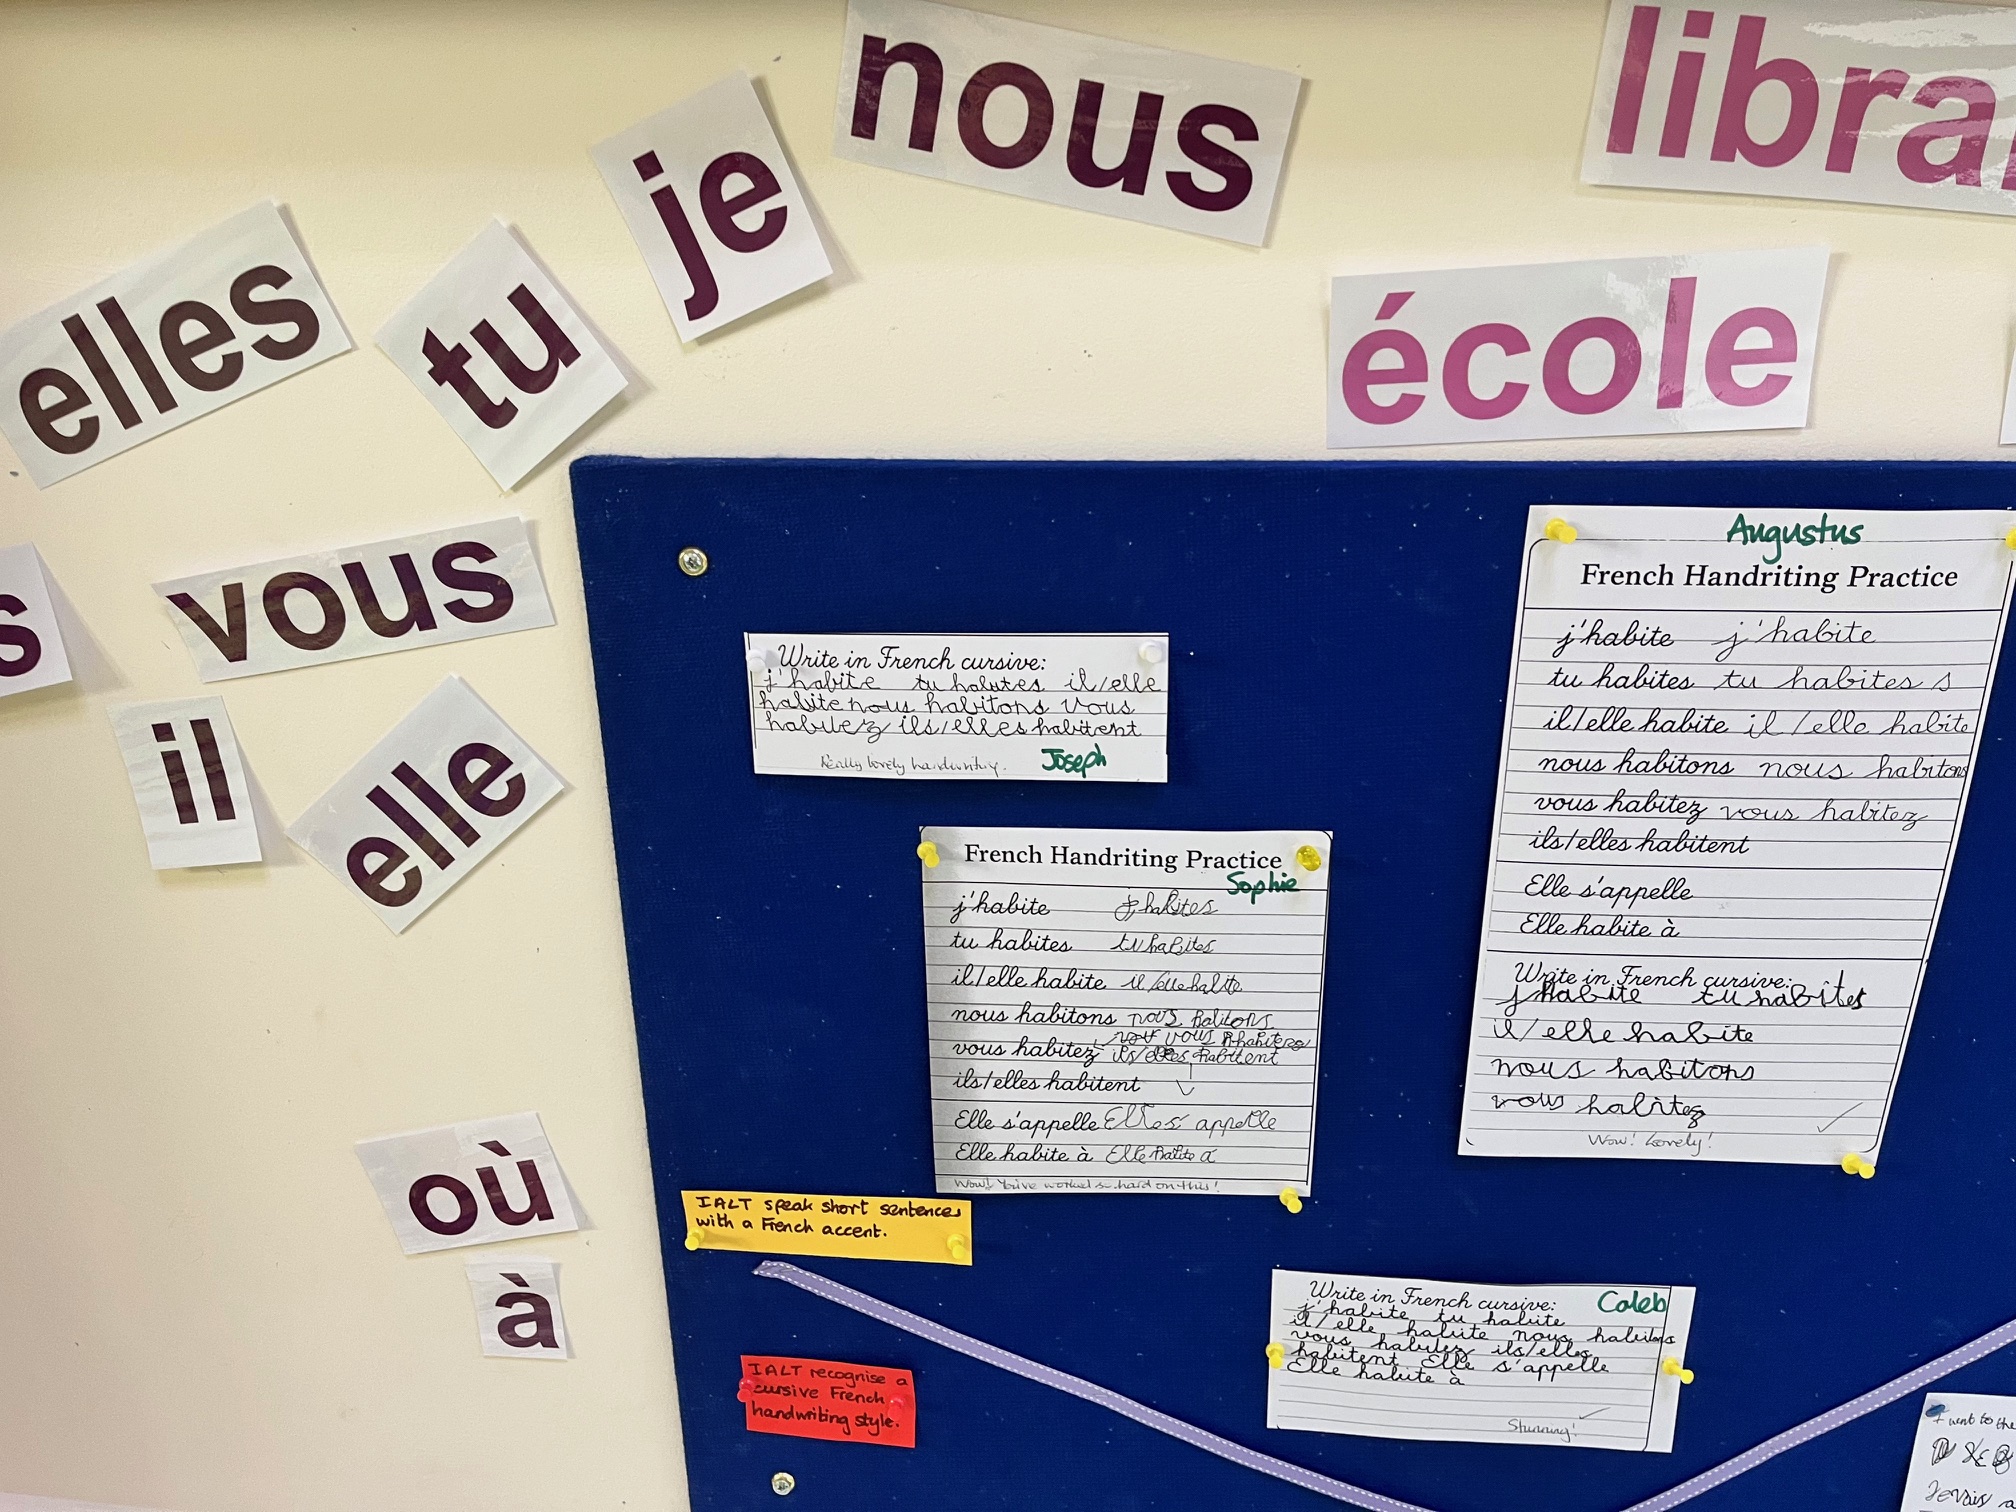 nous
je
elles
tu
école
vous
il
elle
où
à
Write in French cursive:
j'habite tu habites il/elle
habite nous habitons vous
habitez ils/elles habitent
Really lovely handwriting.
Joseph
French Handriting Practice
Sophie
j'habite j'habites
tu habites tu habites
il/elle habite il/elle habite
nous habitons
vous habitez ils/elles habitent
ils/elles habitent
Elle s'appelle Elle s'appelle
Elle habite à Elle habite à
Wow! You've worked so hard on this!
Augustus
French Handriting Practice
j'habite j'habite
tu habites tu habites s
il/elle habite il/elle habite
nous habitons nous habitons
vous habitez vous habitez
ils/elles habitent
Elle s'appelle
Elle habite à
Write in French cursive:
j'habite tu habites
il/elle habite
nous habitons
vous habitez
Wow! Lovely!
IALT speak short sentences
with a French accent.
IALT recognise a
cursive French
handwriting style.
Caleb
Write in French cursive:
j'habite tu habite
il/elle habite nous habitons
vous habitez ils/elles
habitent Elle s'appelle
Elle habite à
Stunning!
I went to the